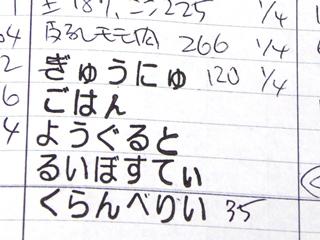 225 1/4
モモ肉 266 1/4
ぎゅうにゅ 120 1/4
ごはん
ようぐると
るいぼすてぃ
くらんべりい 35